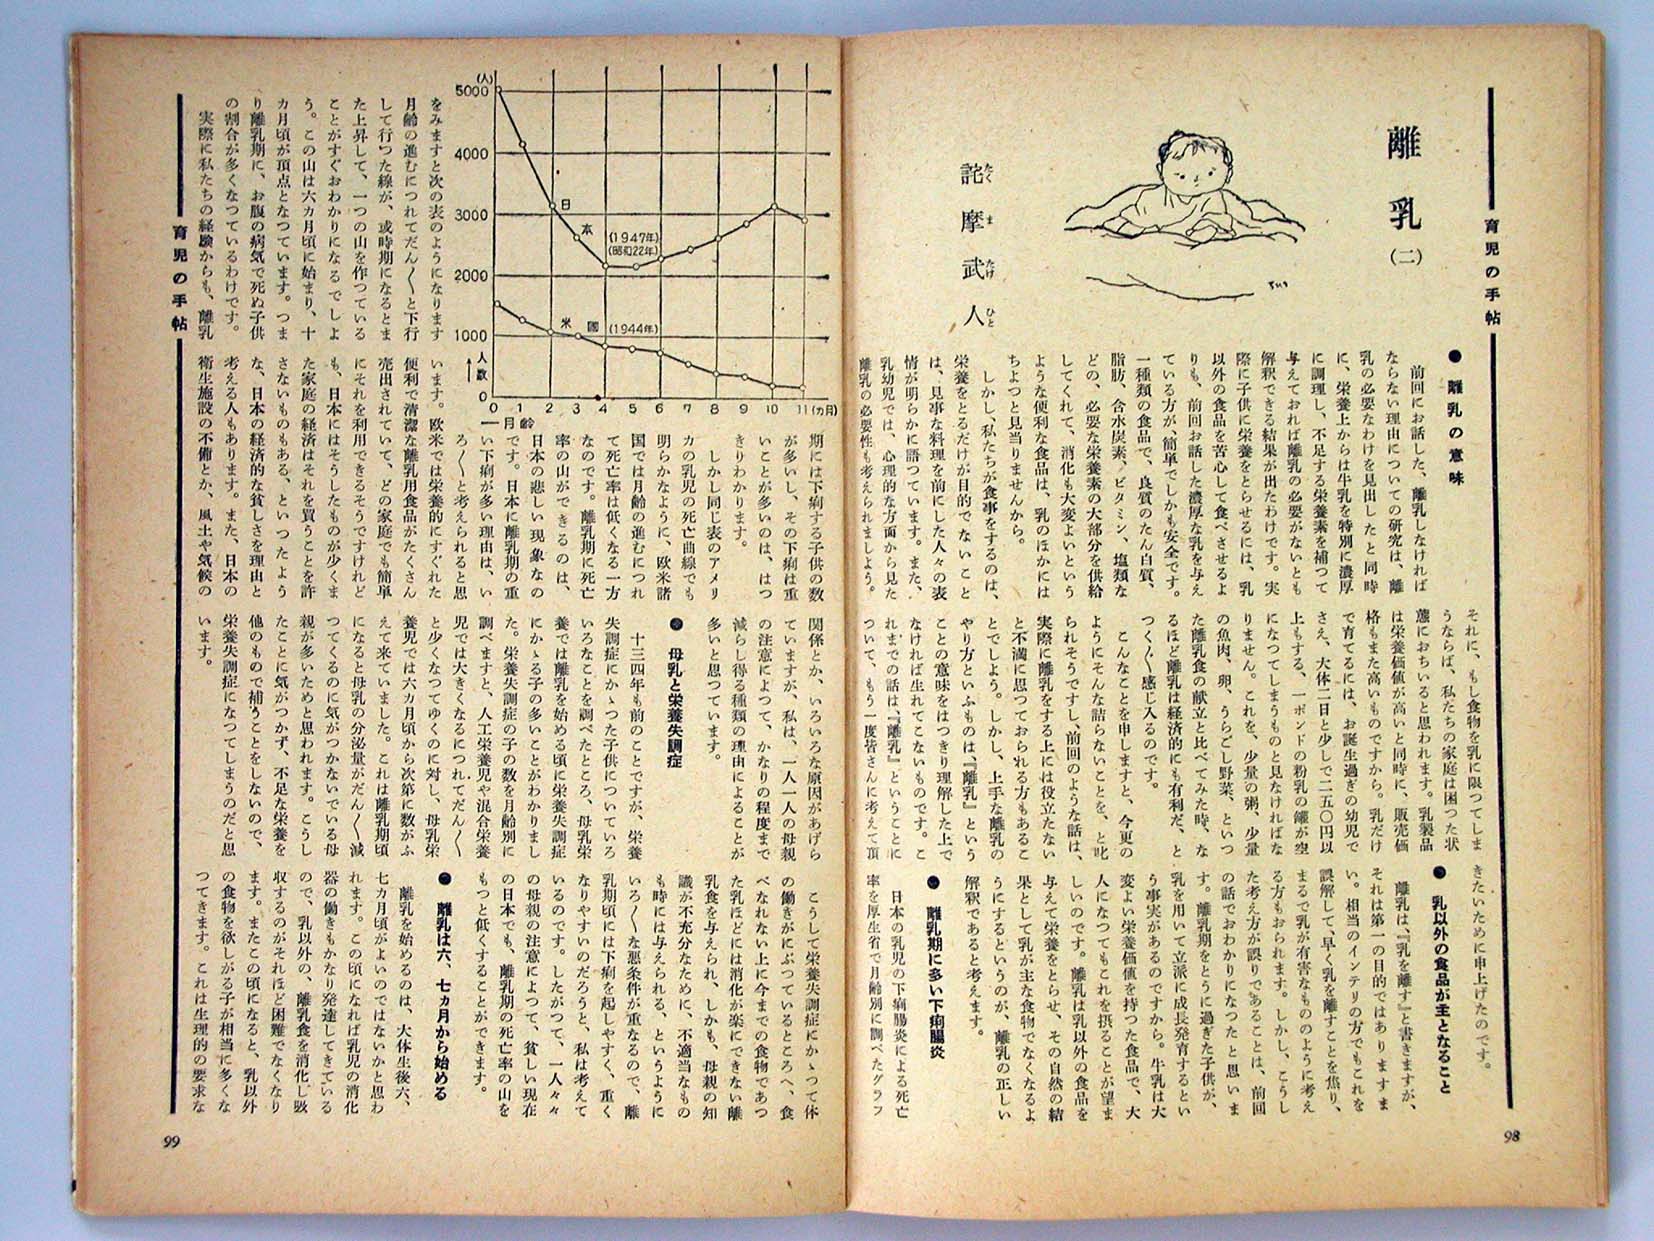 育児の手帖
離乳(二)
詫摩武人
たくまたけひと
●離乳の意味
前回にお話した、離乳しなければ
ならない理由についての研究は、離
乳の必要なわけを見出したと同時
に、栄養上からは牛乳を特別に濃厚
に調理し、不足する栄養素を補つて
与えておれば離乳の必要がないとも
解釈できる結果が出たわけです。実
際に子供に栄養をとらせるには、乳
以外の食品を苦心して食べさせるよ
りも、前回お話した濃厚な乳を与え
ている方が、簡単でしかも安全です。
一種類の食品で、良質のたん白質、
脂肪、含水炭素、ビタミン、塩類な
どの、必要な栄養素の大部分を供給
してくれて、消化も大変よいという
ような便利な食品は、乳のほかには
ちよつと見当りませんから。
しかし、私たちが食事をするのは、
栄養をとるだけが目的でないこと
は、見事な料理を前にした人々の表
情が明らかに語つています。また、
乳幼児では、心理的な方面から見た
離乳の必要性も考えられましよう。
それに、もし食物を乳に限つてしま
うならば、私たちの家庭は困つた状
態におちいると思われます。乳製品
は栄養価値が高いと同時に、販売価
格もまた高いものですから。乳だけ
で育てるには、お誕生過ぎの幼児で
さえ、大体二日と少しで二五〇円以
上もする、一ポンドの粉乳の罐が空
になつてしまうものと見なければな
りません。これを、少量の粥、少量
の魚肉、卵、うらごし野菜、といつ
た離乳食の献立と比べてみた時、な
るほど離乳は経済的にも有利だ、と
つく〴〵感じ入るのです。
こんなことを申しますと、今更の
ようにそんな詰らないことを、と叱
られそうですし、前回のような話は、
実際に離乳をする上には役立たない
と不満に思つておられる方もあるこ
とでしよう。しかし、上手な離乳の
やり方といふものは、『離乳』という
ことの意味をはつきり理解した上で
なければ生れてこないものです。こ
れまでの話は、『離乳』ということに
ついて、もう一度皆さんに考えて頂
きたいために申上げたのです。
●乳以外の食品が主となること
離乳は、『乳を離す』と書きますが、
それは第一の目的ではありますま
い。相当のインテリの方でもこれを
誤解して、早く乳を離すことを焦り、
まるで乳が有害なもののように考え
る方もおられます。しかし、こうし
た考え方が誤りであることは、前回
の話でおわかりになつたと思いま
す。離乳期をとうに過ぎた子供が、
乳を用いて立派に成長発育するとい
う事実があるのですから。牛乳は大
変よい栄養価値を持つた食品で、大
人になつてもこれを摂ることが望ま
しいのです。離乳は乳以外の食品を
与えて栄養をとらせ、その自然の結
果として乳が主な食物でなくなるよ
うにするというのが、離乳の正しい
解釈であると考えます。
●離乳期に多い下痢腸炎
日本の乳児の下痢腸炎による死亡
率を厚生省で月齢別に調べたグラフ
98
(人)
5000
4000
3000
2000
1000
0
人数
日本
(1947年)
(昭和22年)
米國(1944年)
0 1 2 3 4 5 6 7 8 9 10 11(ヵ月)
月齢
をみますと次の表のようになります
月齢の進むにつれてだん〳〵と下行
して行つた線が、或時期になるとま
た上昇して、一つの山を作つている
ことがすぐおわかりになるでしよ
う。この山は六カ月頃に始まり、十
カ月頃が頂点となつています。つま
り離乳期に、お腹の病気で死ぬ子供
の割合が多くなつているわけです。
実際に私たちの経験からも、離乳
期には下痢する子供の数
が多いし、その下痢は重
いことが多いのは、はつ
きりわかります。
しかし同じ表のアメリ
カの乳児の死亡曲線でも
明らかなように、欧米諸
国では月齢の進むにつれ
て死亡率は低くなる一方
なのです。離乳期に死亡
率の山ができるのは、
日本の悲しい現象なの
です。日本に離乳期の重
い下痢が多い理由は、い
ろ〳〵と考えられると思
います。欧米では栄養的にすぐれた
便利で清潔な離乳用食品がたくさん
売出されていて、どの家庭でも簡単
にそれを利用できるそうですけれど
も、日本にはそうしたものが少くま
た家庭の経済はそれを買うことを許
さないものもある、といつたよう
な、日本の経済的な貧しさを理由と
考える人もあります。また、日本の
衛生施設の不備とか、風土や気候の
関係とか、いろいろな原因があげら
れていますが、私は、一人一人の母親
の注意によつて、かなりの程度まで
減らし得る種類の理由によることが
多いと思つています。
●母乳と栄養失調症
十三四年も前のことですが、栄養
失調症にかゝつた子供についていろ
いろなことを調べたところ、母乳栄
養では離乳を始める頃に栄養失調症
にかゝる子の多いことがわかりまし
た。栄養失調症の子の数を月齢別に
調べますと、人工栄養児や混合栄養
児では大きくなるにつれてだん〳〵
と少くなつてゆくのに対し、母乳栄
養児では六カ月頃から次第に数がふ
えて来ていました。これは離乳期頃
になると母乳の分泌量がだん〳〵減
つてくるのに気がつかないでいる母
親が多いためと思われます。こうし
たことに気がつかず、不足な栄養を
他のもので補うことをしないので、
栄養失調症になつてしまうのだと思
います。
こうして栄養失調症にかゝつて体
の働きがにぶつているところへ、食
べなれない上に今までの食物であつ
た乳ほどには消化が楽にできない離
乳食を与えられ、しかも、母親の知
識が不充分なために、不適当なもの
も時には与えられる、というように
いろ〳〵な悪条件が重なるので、離
乳期頃には下痢を起しやすく、重く
なりやすいのだろうと、私は考えて
いるのです。したがつて、一人々々
の母親の注意によつて、貧しい現在
の日本でも、離乳期の死亡率の山を
もつと低くすることができます。
●離乳は六、七カ月から始める
離乳を始めるのは、大体生後六、
七カ月頃がよいのではないかと思わ
れます。この頃になれば乳児の消化
器の働きもかなり発達してきている
ので、乳以外の、離乳食を消化し吸
収するのがそれほど困難でなくなり
ます。またこの頃になると、乳以外
の食物を欲しがる子が相当に多くな
つてきます。これは生理的の要求な
育児の手帖
99